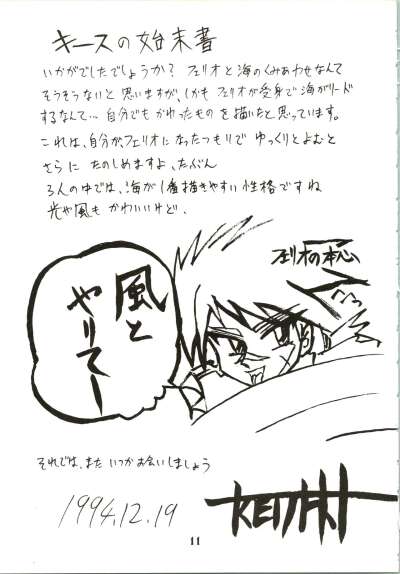 キースの始末書
いかがでしたでしょうか？フェリオと海のくみあわせなんて
そうそうないと思いますが、しかもフェリオが受身で海がリード
するなんて…自分でもかわったものを描いたと思っています。
これは、自分がフェリオになったつもりでゆっくりとよむと
さらにたのしめますよ、たぶん
3人の中では、海が1番描きやすい性格ですね
光や風もかわいいけど．
フェリオの本心
風と
やりてー
それでは、また いつかお会いしましょう
1994.12.19
11